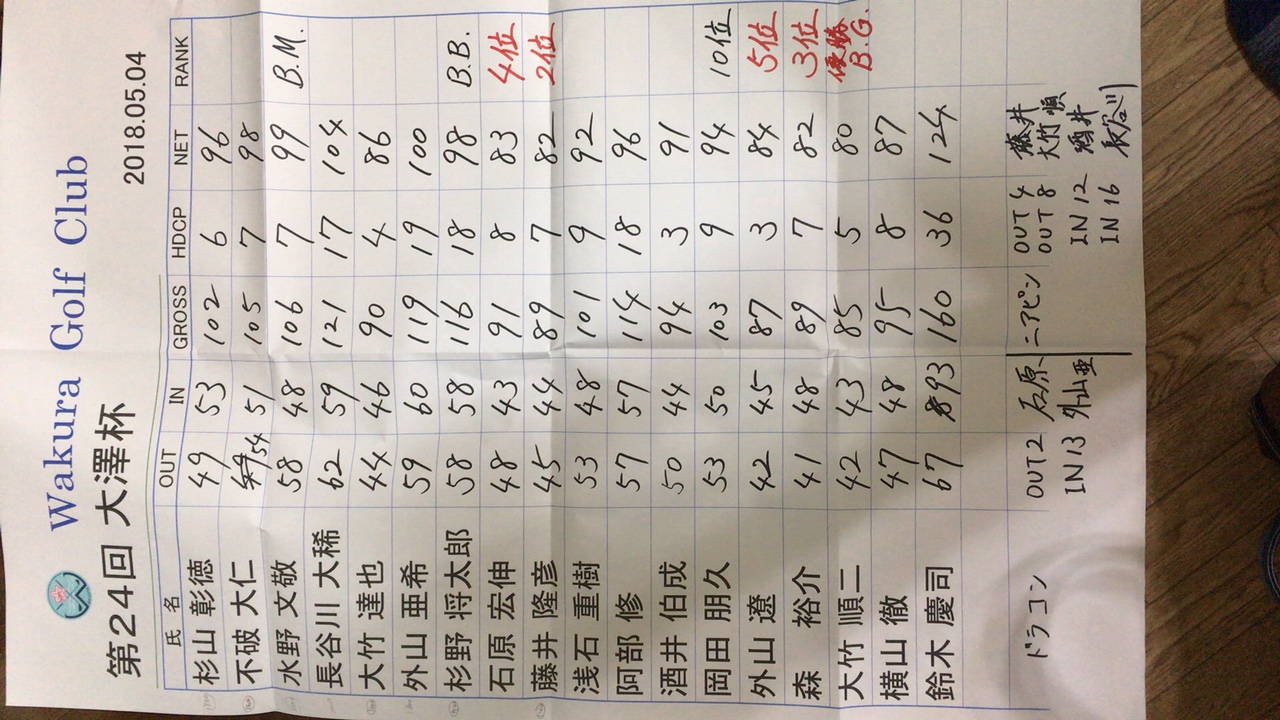 Wakura Golf Club
第24回 大澤杯 2018.05.04
氏 名 OUT IN GROSS HDCP NET RANK
杉山 彰徳 49 53 102 6 96
不破 大仁 54 51 105 7 98
水野 文敬 58 48 106 7 99 B.M.
長谷川 大稀 62 59 121 17 104
大竹 達也 44 46 90 4 86
外山 亜希 59 60 119 19 100
杉野 将太郎 58 58 116 18 98 B.B.
石原 宏伸 48 43 91 8 83 4位
藤井 隆彦 45 44 89 7 82 2位
浅石 重樹 53 48 101 9 92
阿部 修 57 57 114 18 96
酒井 伯成 50 44 94 3 91
岡田 朋久 53 50 103 9 94 10位
外山 遼 42 45 87 3 84 5位
森 裕介 41 48 89 7 82 3位
大竹 順二 42 43 85 5 80 優勝 B.G.
横山 徹 47 48 95 8 87
鈴木 慶司 67 93 160 36 124
ドラコン OUT2 石原 ニアピン OUT 4 藤井
OUT 8 大竹順
IN 13 外山亜 IN 12 酒井
IN 16 長谷川